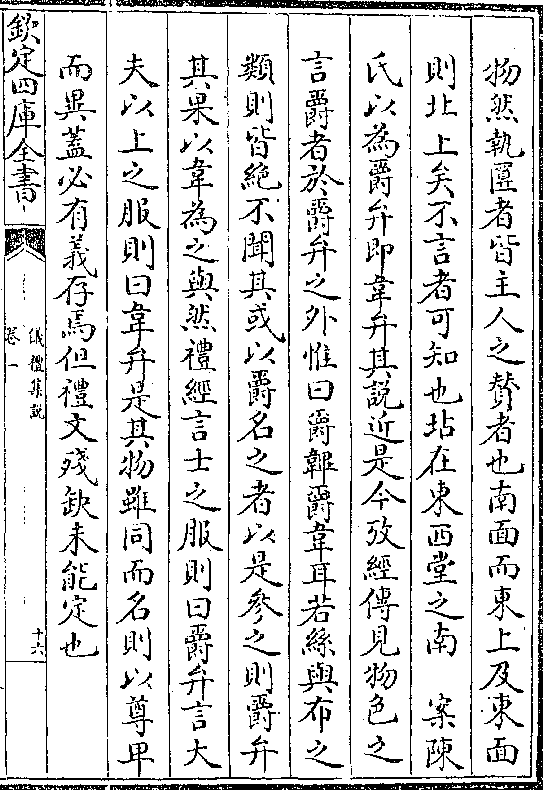 物然執匴者皆主人之贊者也南面而東上及東面
則北上矣不言者可知也坫在東西堂之南　案陳
氏以為爵弁即韋弁其説近是今攷經傳見物色之
言爵者於爵弁之外惟曰爵韠爵韋耳若絲與布之
類則皆絶不聞其或以爵名之者以是參之則爵弁
其果以韋為之與然禮經言士之服則曰爵弁言大
夫以上之服則曰韋弁是其物雖同而名則以尊卑
而異蓋必有義存焉但禮文殘缺未能定也
欽定四庫全書
儀禮集説
卷一
十六